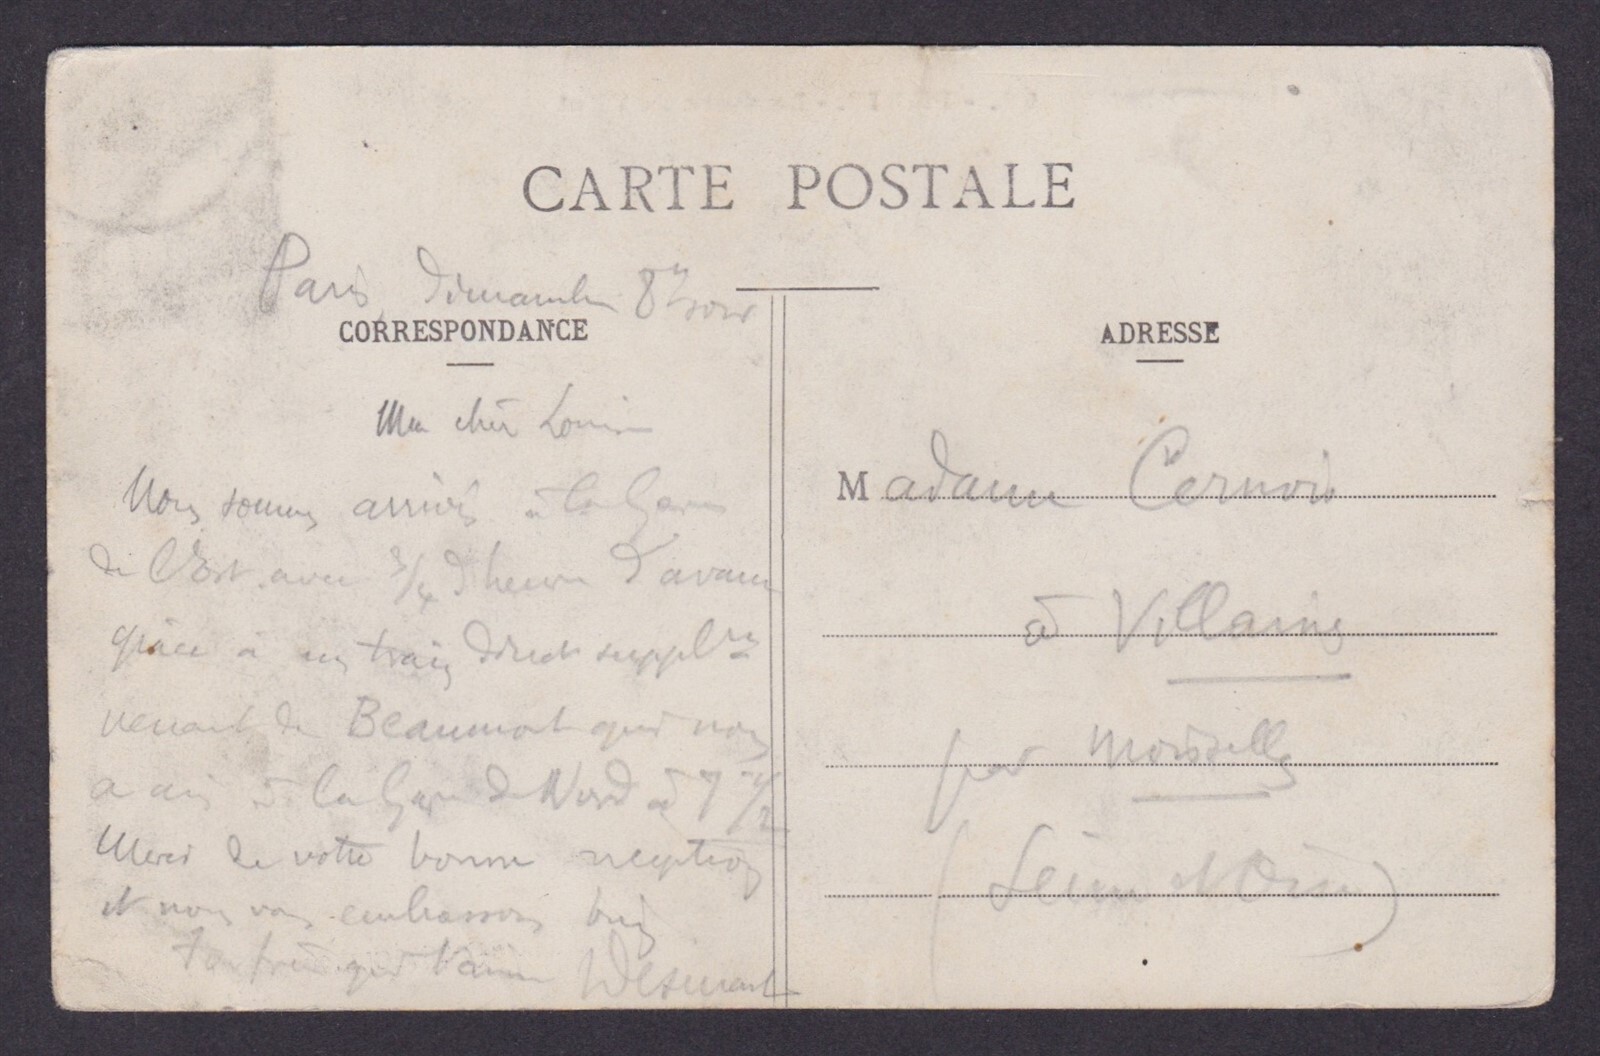 CARTE POSTALE
Paris, dimanche 8h soir
CORRESPONDANCE
Ma chère Louise
Nous sommes arrivés à la Gare
de l'Est avec 3/4 d'heure d'avance
grâce à un train direct suppl.re
venant de Beaumont qui nous
a mis à la Gare du Nord à 7h 1/2
Merci de votre bonne réception
et nous vous embrassons bien
Ton frère qui t'aime
ADRESSE
Madame Cernois
à Villaines
par Moisselles
(Seine et Oise)